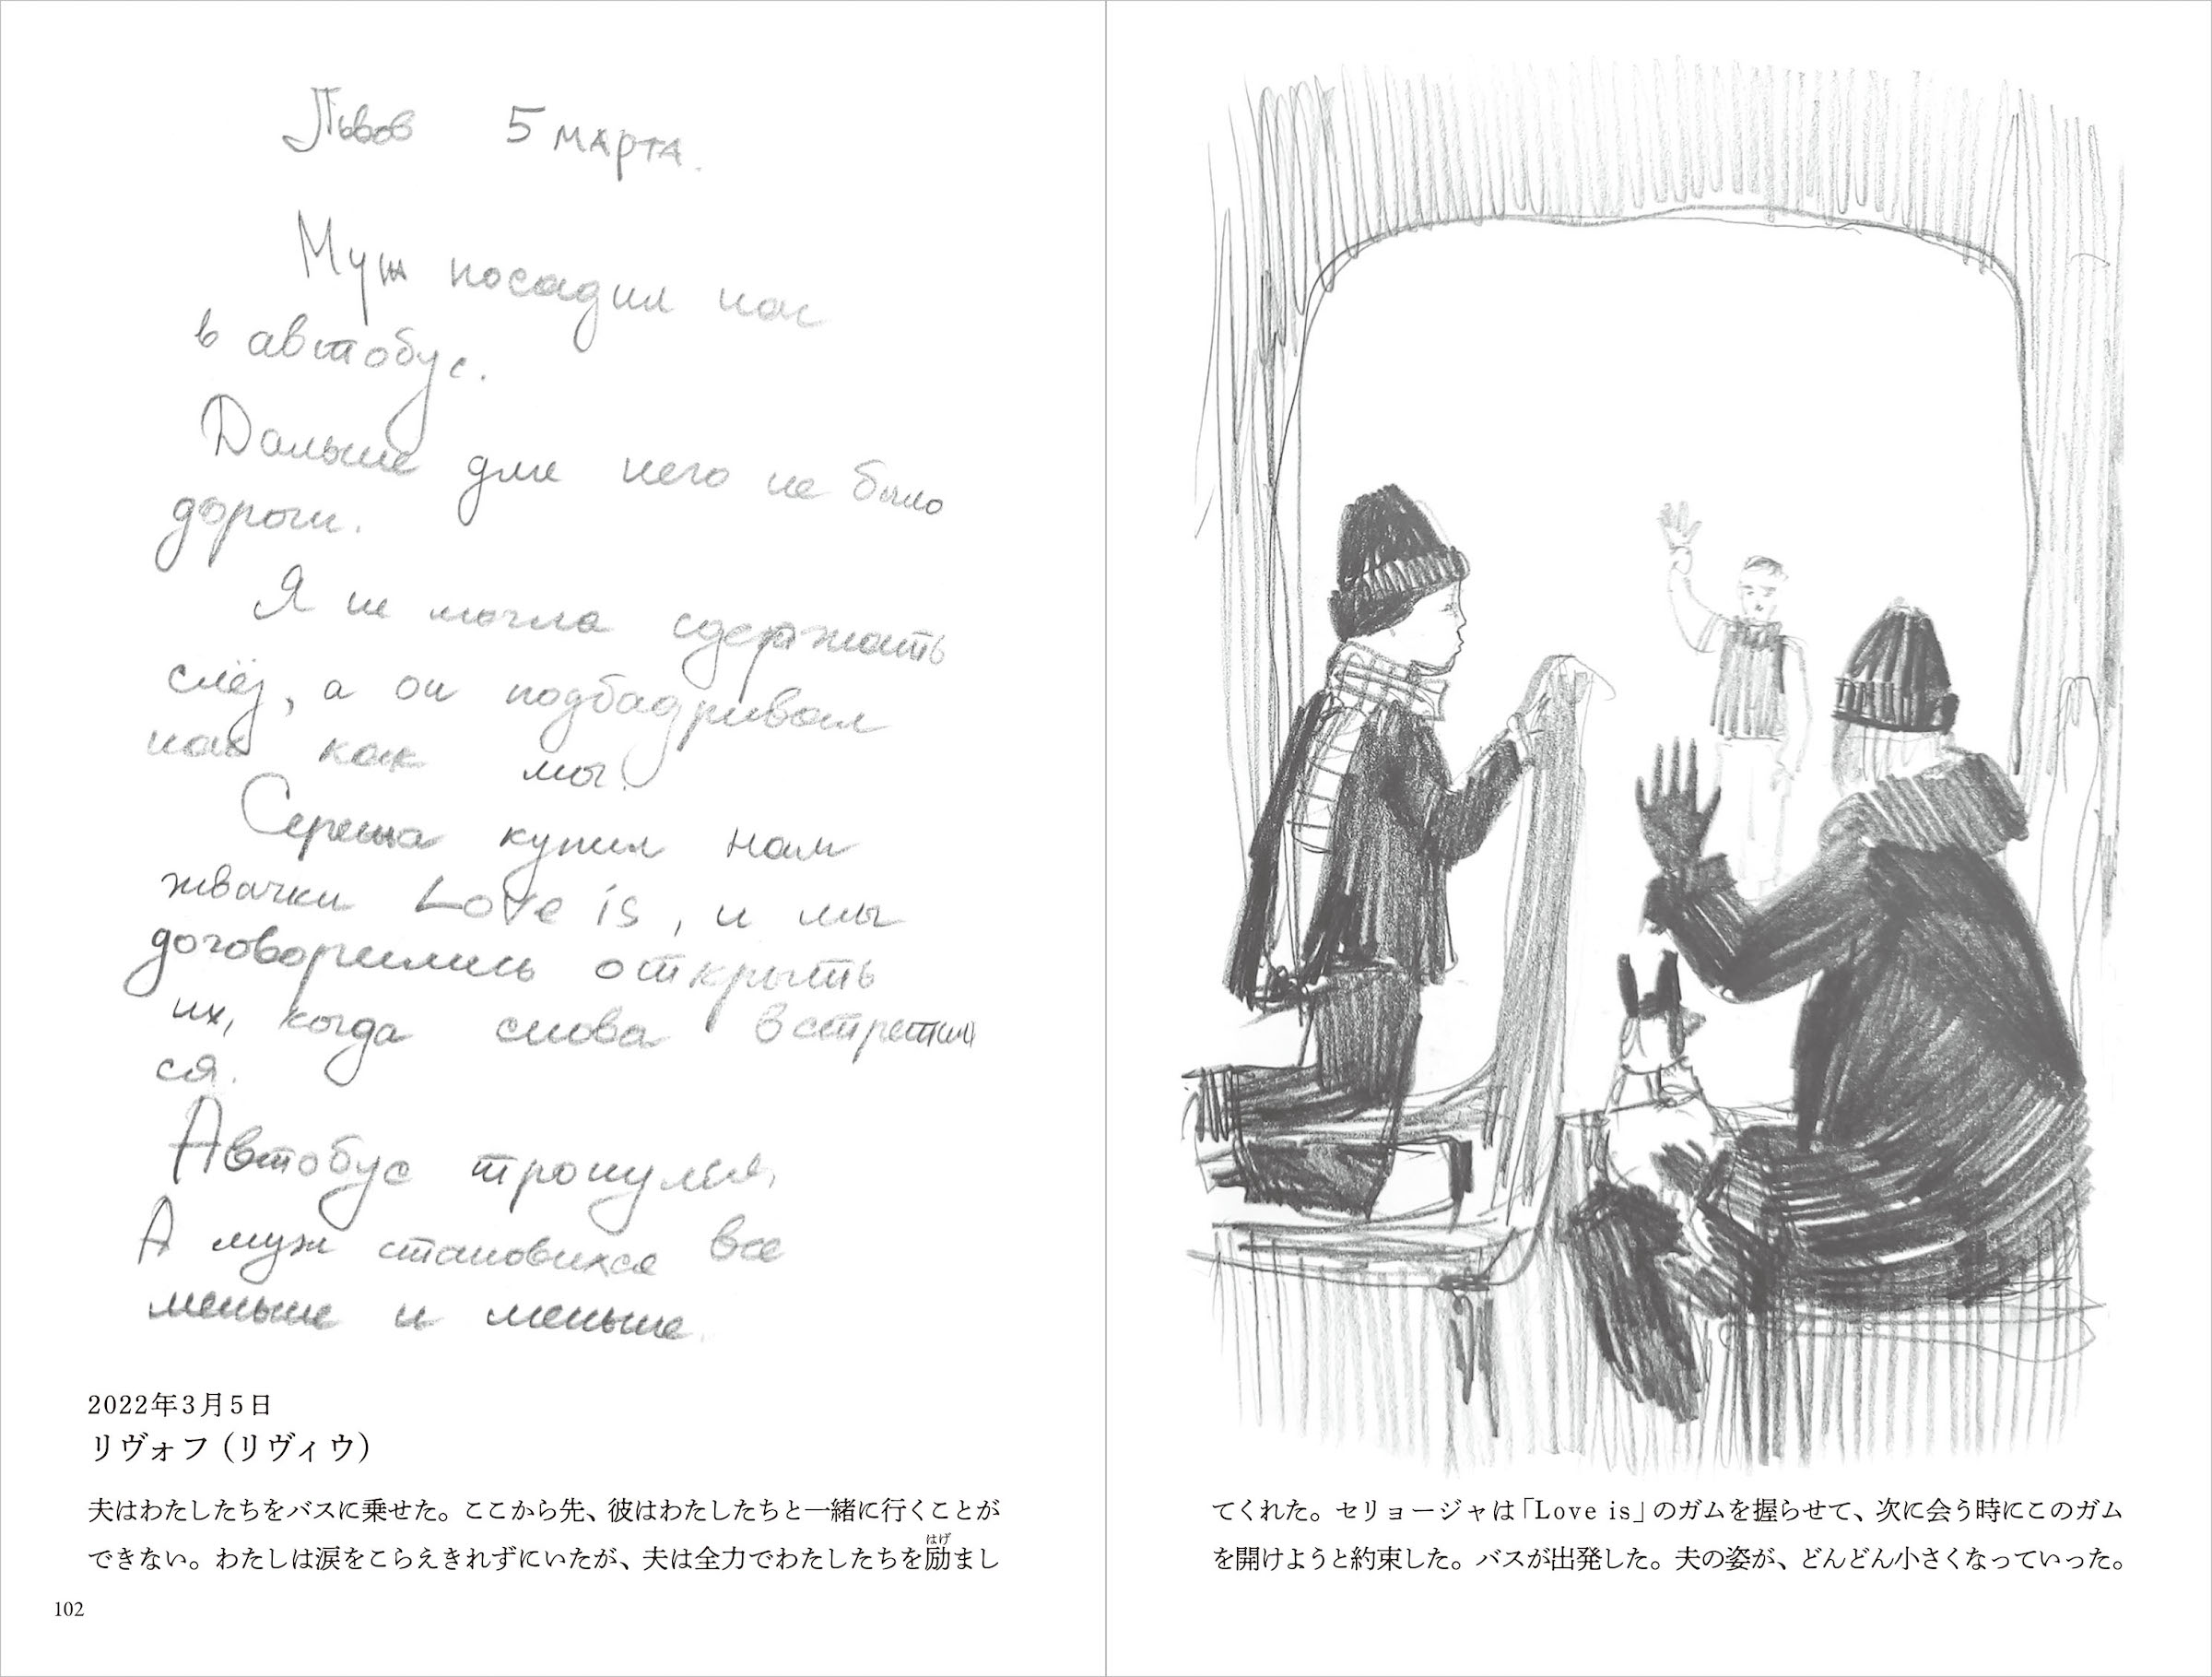 Львов 5 марта.
Муж посадил нас
в автобус.
Дальше для него не было
дороги.
Я не могла сдержать
слёз, а он подбадривал
нас как мог.
Сережа купил нам
жвачки Love is, и мы
договорились открыть
их, когда снова встретим
ся.
Автобус тронулся,
А муж становился все
меньше и меньше.
2022年3月5日
リヴォフ（リヴィウ）
夫はわたしたちをバスに乗せた。ここから先、彼はわたしたちと一緒に行くことが
できない。わたしは涙をこらえきれずにいたが、夫は全力でわたしたちを励(はげ)まし
102
てくれた。セリョージャは「Love is」のガムを握らせて、次に会う時にこのガム
を開けようと約束した。バスが出発した。夫の姿が、どんどん小さくなっていった。